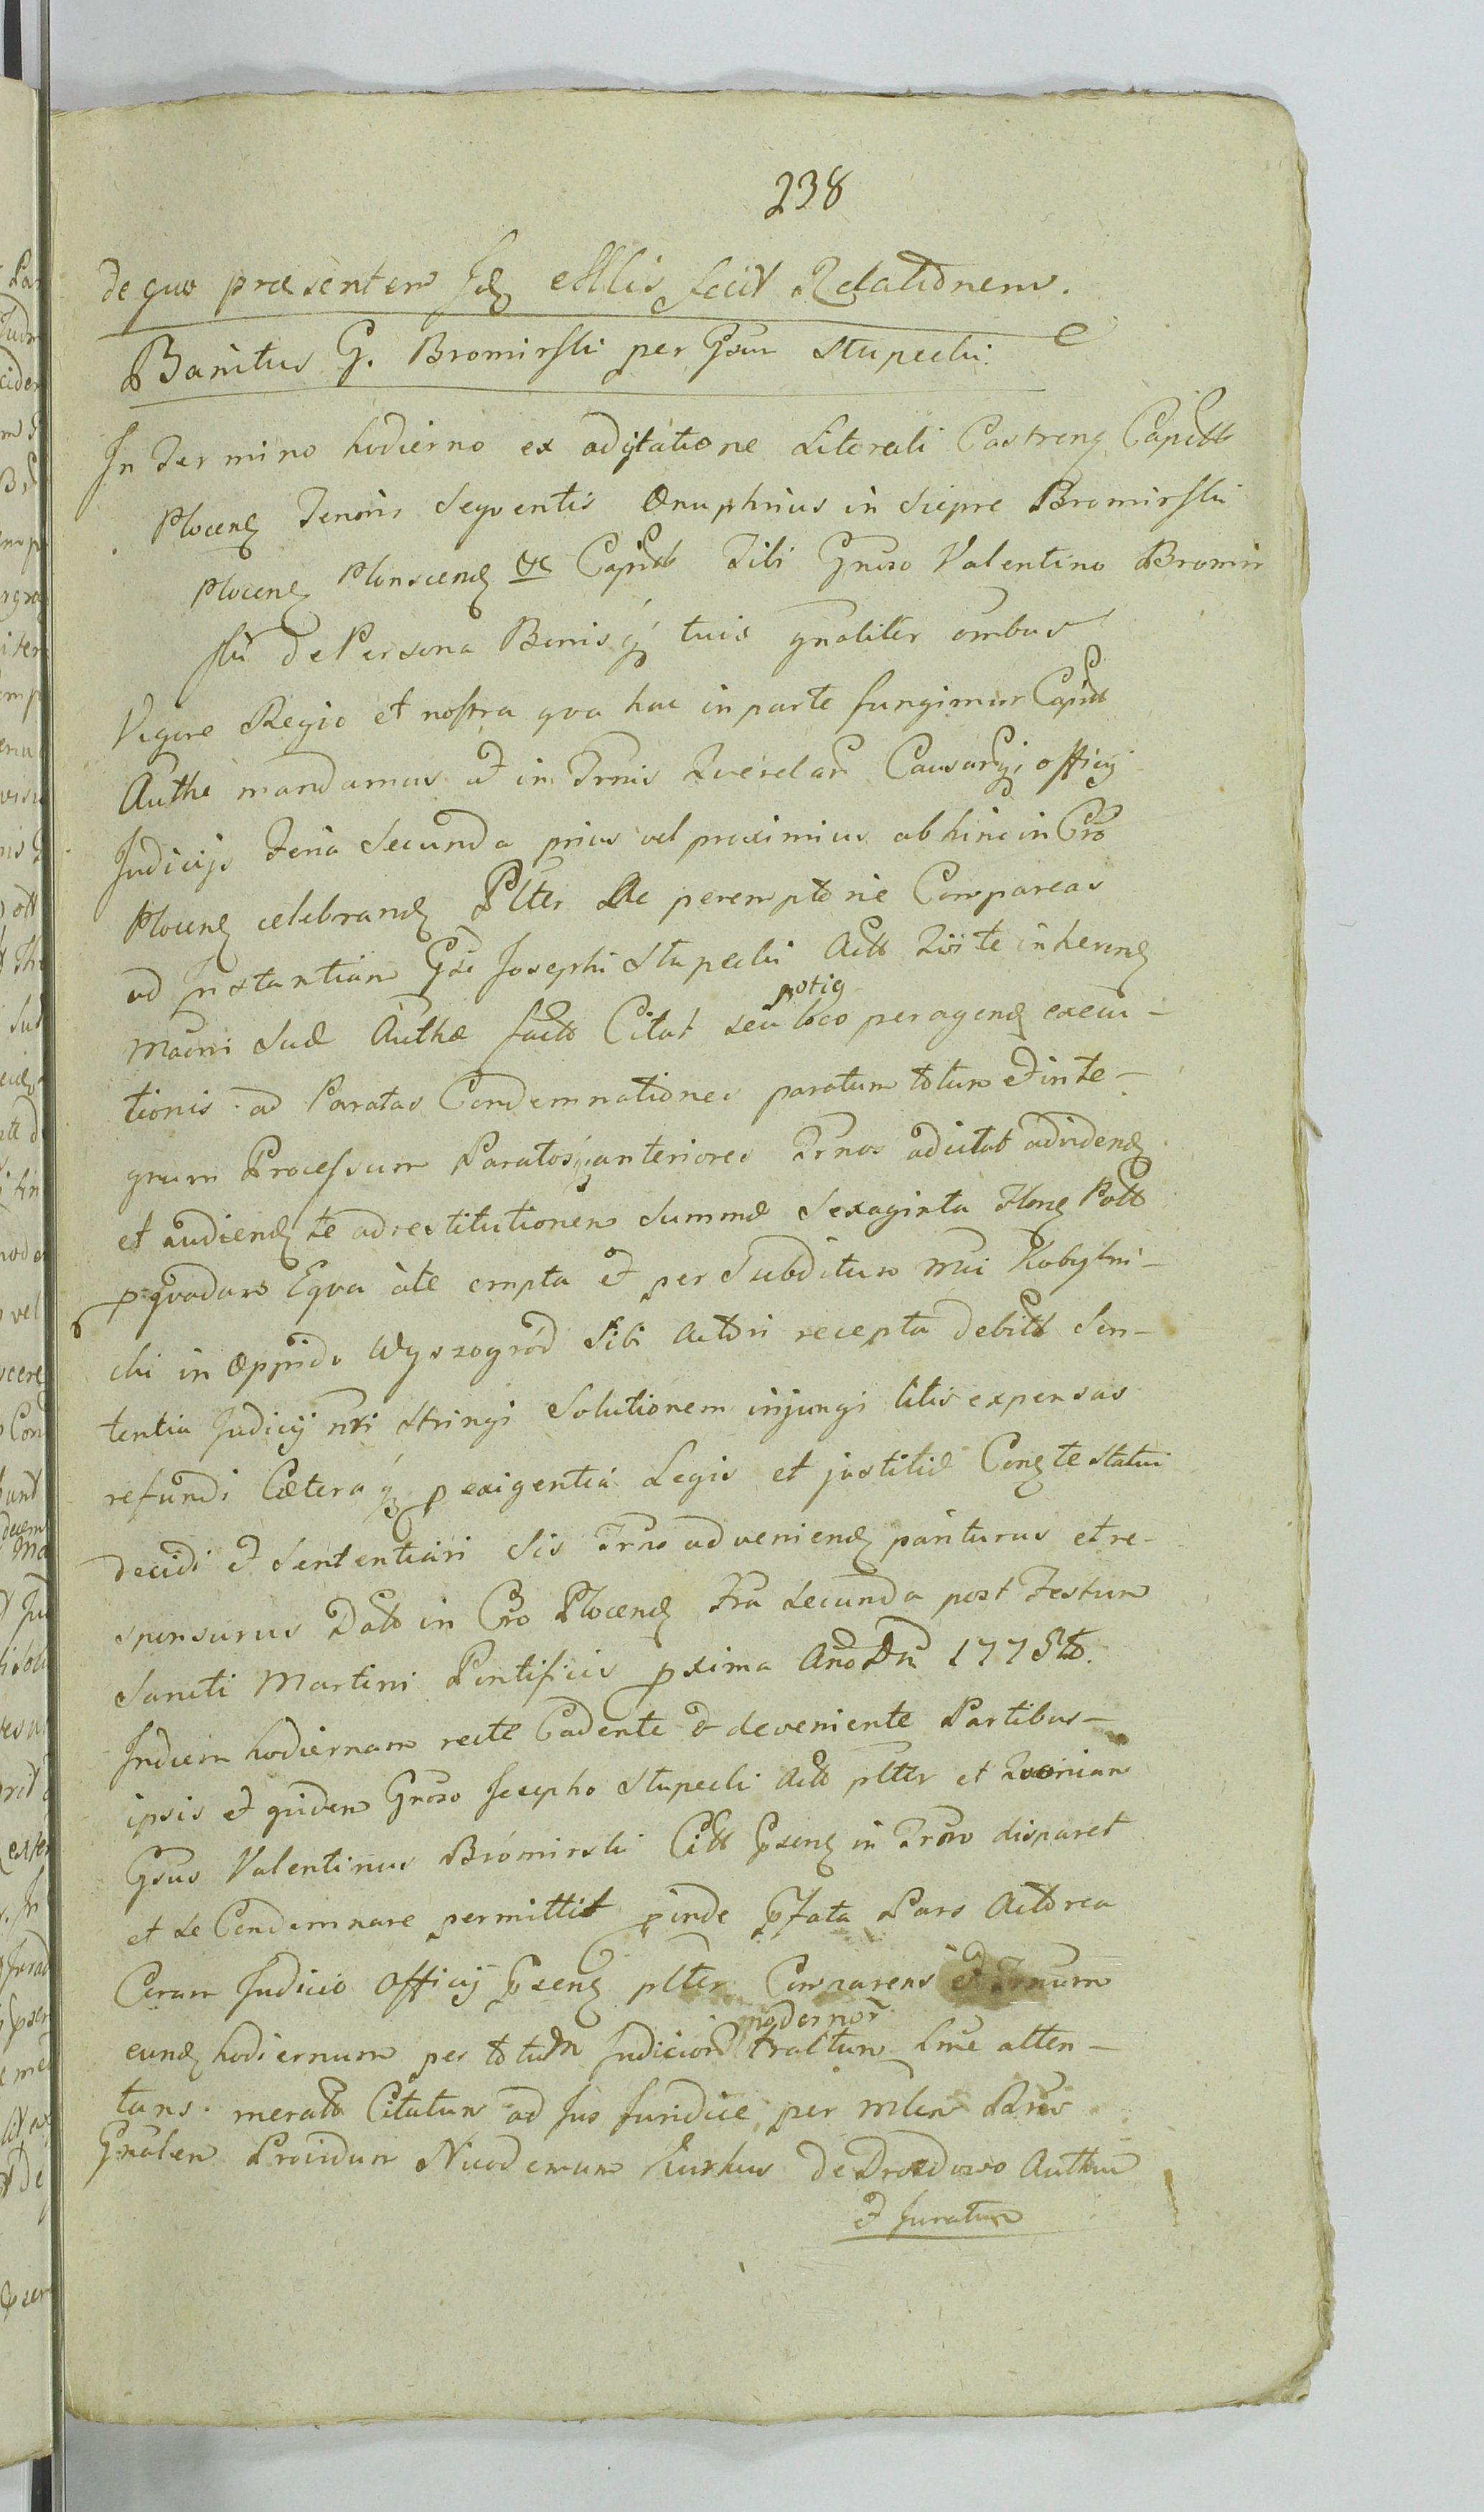 238
de quo praesentem Idq Mlis fecit Relationem.
Banitus G. Bromirski per Gsum Stupecki
In Termino hodierno ex adcitatione Literali Castrenq Capitt
Plocenq Tenoris Seqventis Onuphrius in Siepre Bromirski
Plocenq Plonscenq &c Capitt Tibi Gnoso Valentino Bromir
ski de Persona Bonisq tuis gnaliter ombus
Vigore Regio et nostra qva hac in parte fungimur Capitt
Authe mandamus ut in Trnis Qverelar Causarq officij
Judicijs Feria Secunda prius vel proximius ab hinc in Cro
Plocenq celebranq Plter Ac peremptorie Compareas
ad Instantiam Gsi Josephi Stupecki Actt Qui te inherenq
potiq
maori Suae Authae factt Citat seu loco peragenq execu-
tionis ad Paratas Condemnationes paratum totum et inte-
grum Processum Paratosq anteriores Trnos adcitat ad videnq
et audienq te ad restitutionem Summae Sexaginta Flonq Poll
p qvadam Eqva a te empta et per Subditum Mci Kobylni-
cki in Oppido Wyszogród Sibi Actori recepta debitt Sen-
tentia Judicij nri Stringi Solutionem injungi litis expensas
refundi Caeteraq p exigentia Legis et justitiae Conq te statui
decidi et Sententiari Sis Trno advenienq pariturus et re-
sponsurus Datt in Cro Plocenq Fra Secunda post Festum
Sancti Martini Pontificis pxima Ano Dni 1775to.
In diem hodiernam recte Cadente & deveniente Partibus-
ipsis et quidem Gnoso Josepho Stupecki Actt plter et Qvoniam
Gsus Valentinus Bromirski Citt psenq in Trno disparet
et se Condemnare permittit pinde pfata Pars Actorea
Coram Judicio Officij psenq plter Comparens et Trnum
modernor
eunq hodiernum per totum Judicior tractum Lme atten-
tans. meratt Citatum ad Jus Juridice per mlem Rnis
Gnalem Providum Nicodemum de Drozdowo Authm
et Juratum